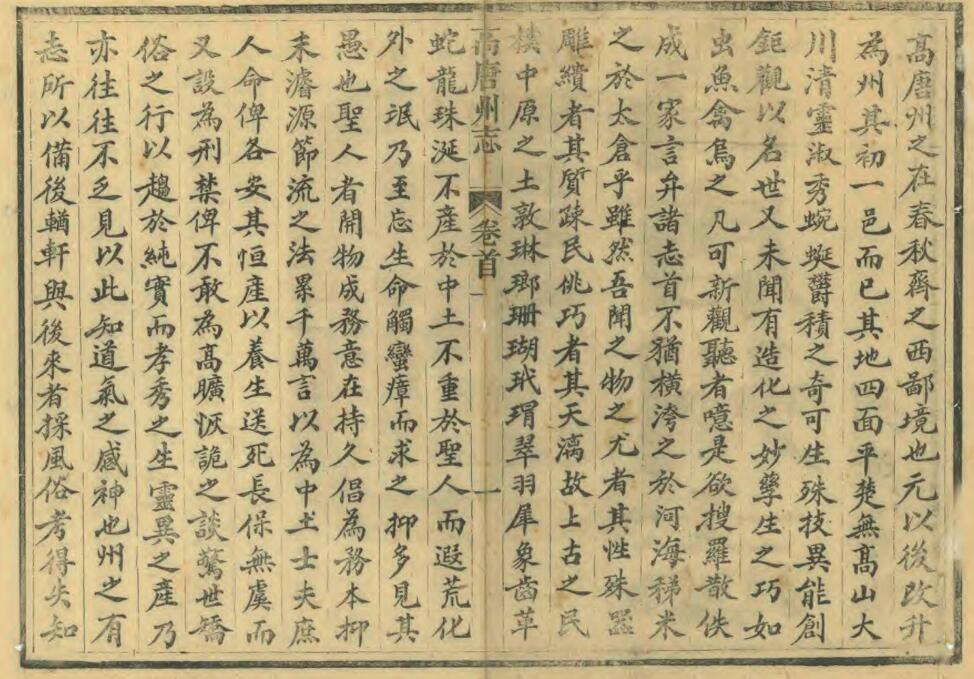 高唐州之在春秋齊之西鄙境也元以後改升
為州其初一邑而已其地四面平楚無高山大
川清靈淑秀蜿蜒欝積之奇可生殊技異能創
鉅觀以名世又未聞有造化之妙孳生之巧如
虫魚禽鳥之凡可新觀聽者噫是欲搜羅散佚
成一家言弁諸志首不猶橫洿之於河海稊米
之於太倉乎雖然吾聞之物之尤者其性殊器
雕繢者其質疎民佻巧者其天漓故上古之民
樸中原之土敦琳瑯珊瑚玳瑁翠羽犀象齒革
高唐州志 卷首 一
蛇龍珠涎不產於中土不重於聖人而遐荒化
外之珉乃至忘生命觸蠻瘴而求之抑多見其
愚也聖人者開物成務意在持久倡為務本抑
末濬源節流之法累千萬言以為中土士夫庶
人命俾各安其恒產以養生送死長保無虞而
又設為刑禁俾不敢為高曠恢詭之談驚世矯
俗之行以趨於純實而孝秀之生靈異之產乃
亦往往不乏見以此知道氣之感神也州之有
志所以備後輶軒與後來者採風俗考得失知